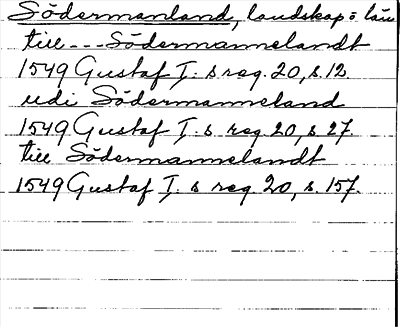 Södermanland, landskap o. län
till --- Södermannelandt
1549 Gustaf I:s reg. 20, s. 12.
udi Södermanneland
1549 Gustaf I:s reg. 20, s. 27.
till Södermannelandt
1549 Gustaf I:s reg. 20, s. 157.